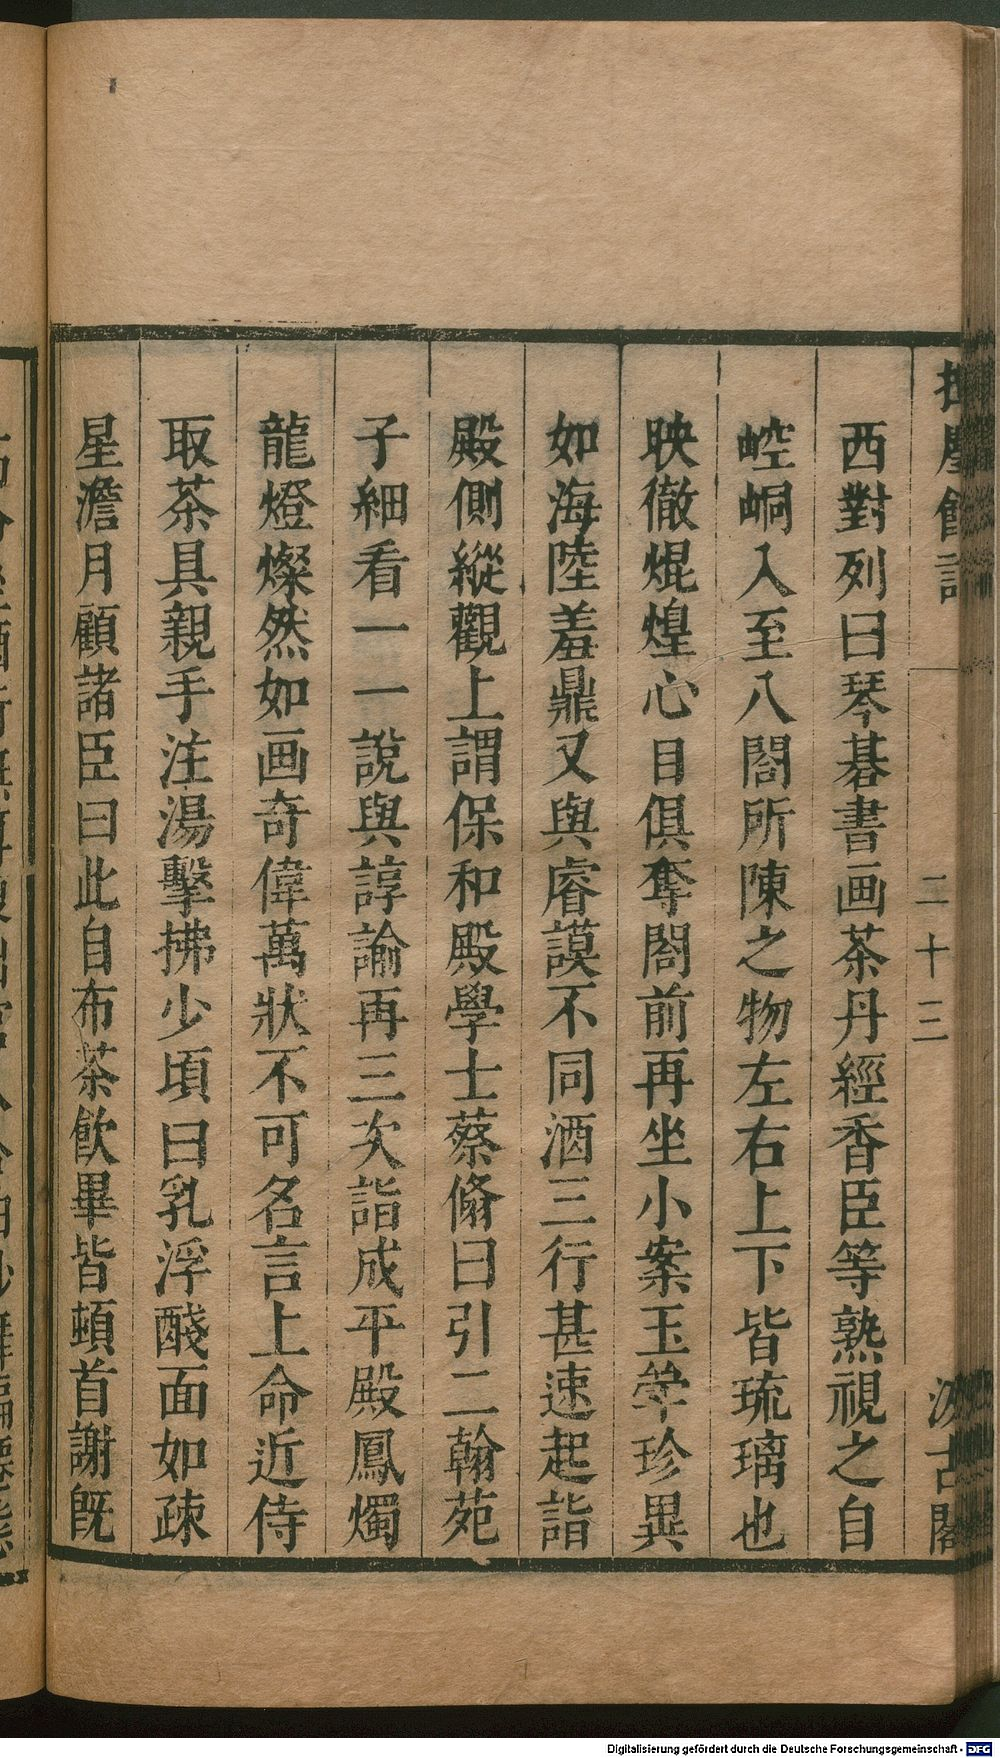 西對列曰琴棊書画茶丹經香臣等熟視之自
崆峒入至八閣所陳之物左右上下皆琉璃也
映徹焜煌心目俱奪閣前再坐小案玉斝珍異
如海陸羞鼎又與睿謨不同酒三行甚速起詣
殿側縱觀上謂保和殿學士蔡絛曰引二翰苑
子細看一一說與諄諭再三次詣成平殿鳳燭
龍燈燦然如画奇偉萬狀不可名言上命近侍
取茶具親手注湯擊拂少頃曰乳浮醆面如疎
星澹月顧諸臣曰此自布茶飲畢皆頓首謝旣
二十三
汲古閣
Digitalisierung gefördert durch die Deutsche Forschungsgemeinschaft - DFG